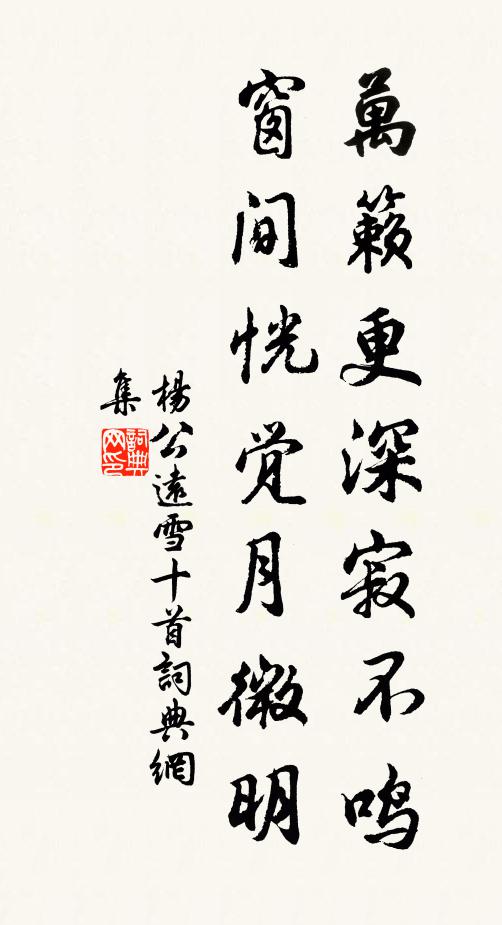 萬籟更深寂不鸣
窗间恍觉月微明
楊公遠雪十首詞典網
集
詞典网印